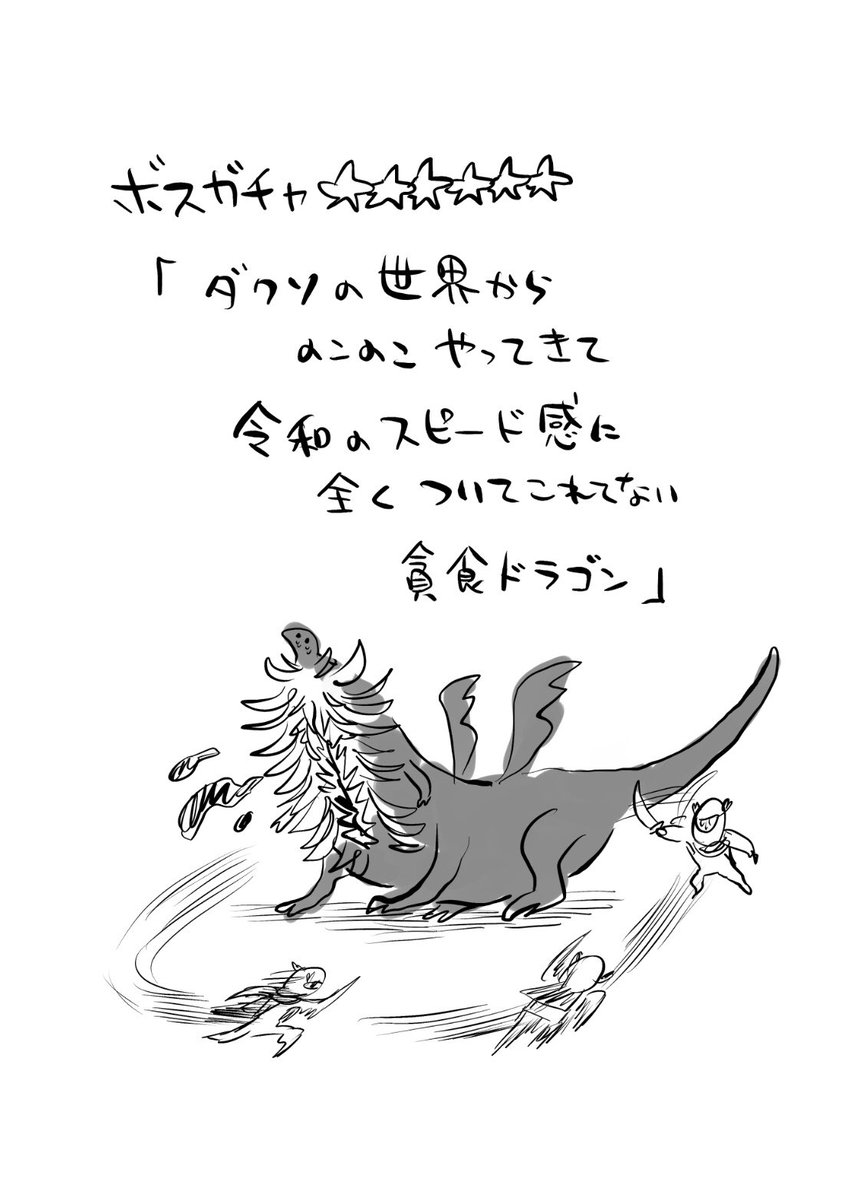 ボスガチャ☆☆☆☆☆☆
「ダクソの世界から
のこのこ やってきて
令和のスピード感に
全く ついてこれてない
貪食ドラゴン」